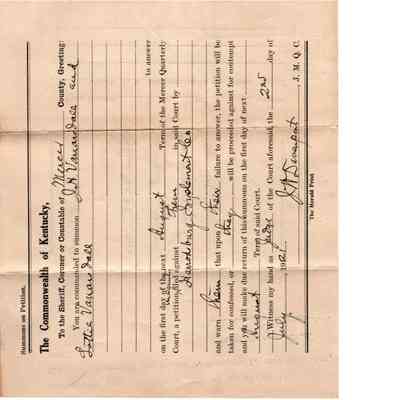 Summons on Petition.
The Commonwealth of Kentucky,
To the Sheriff, Coroner or Constable of Mercer County, Greeting:
You are commanded to summon J. H. Vanarsdall and
Lottie Vanarsdall
to answer
on the first day of the next August Term of the Mercer Quarterly
Court, a petition filed against them in said Court by
Harrodsburg
and warn them that upon their failure to answer, the petition will be
taken for confessed, or they will be proceeded against for contempt
and you will make due return of this summons on the first day of next
August Term of said Court.
Witness my hand as Judge of the Court aforesaid, the 2nd day of
July, 1921.
J. M. Q. C.
The Herald Print